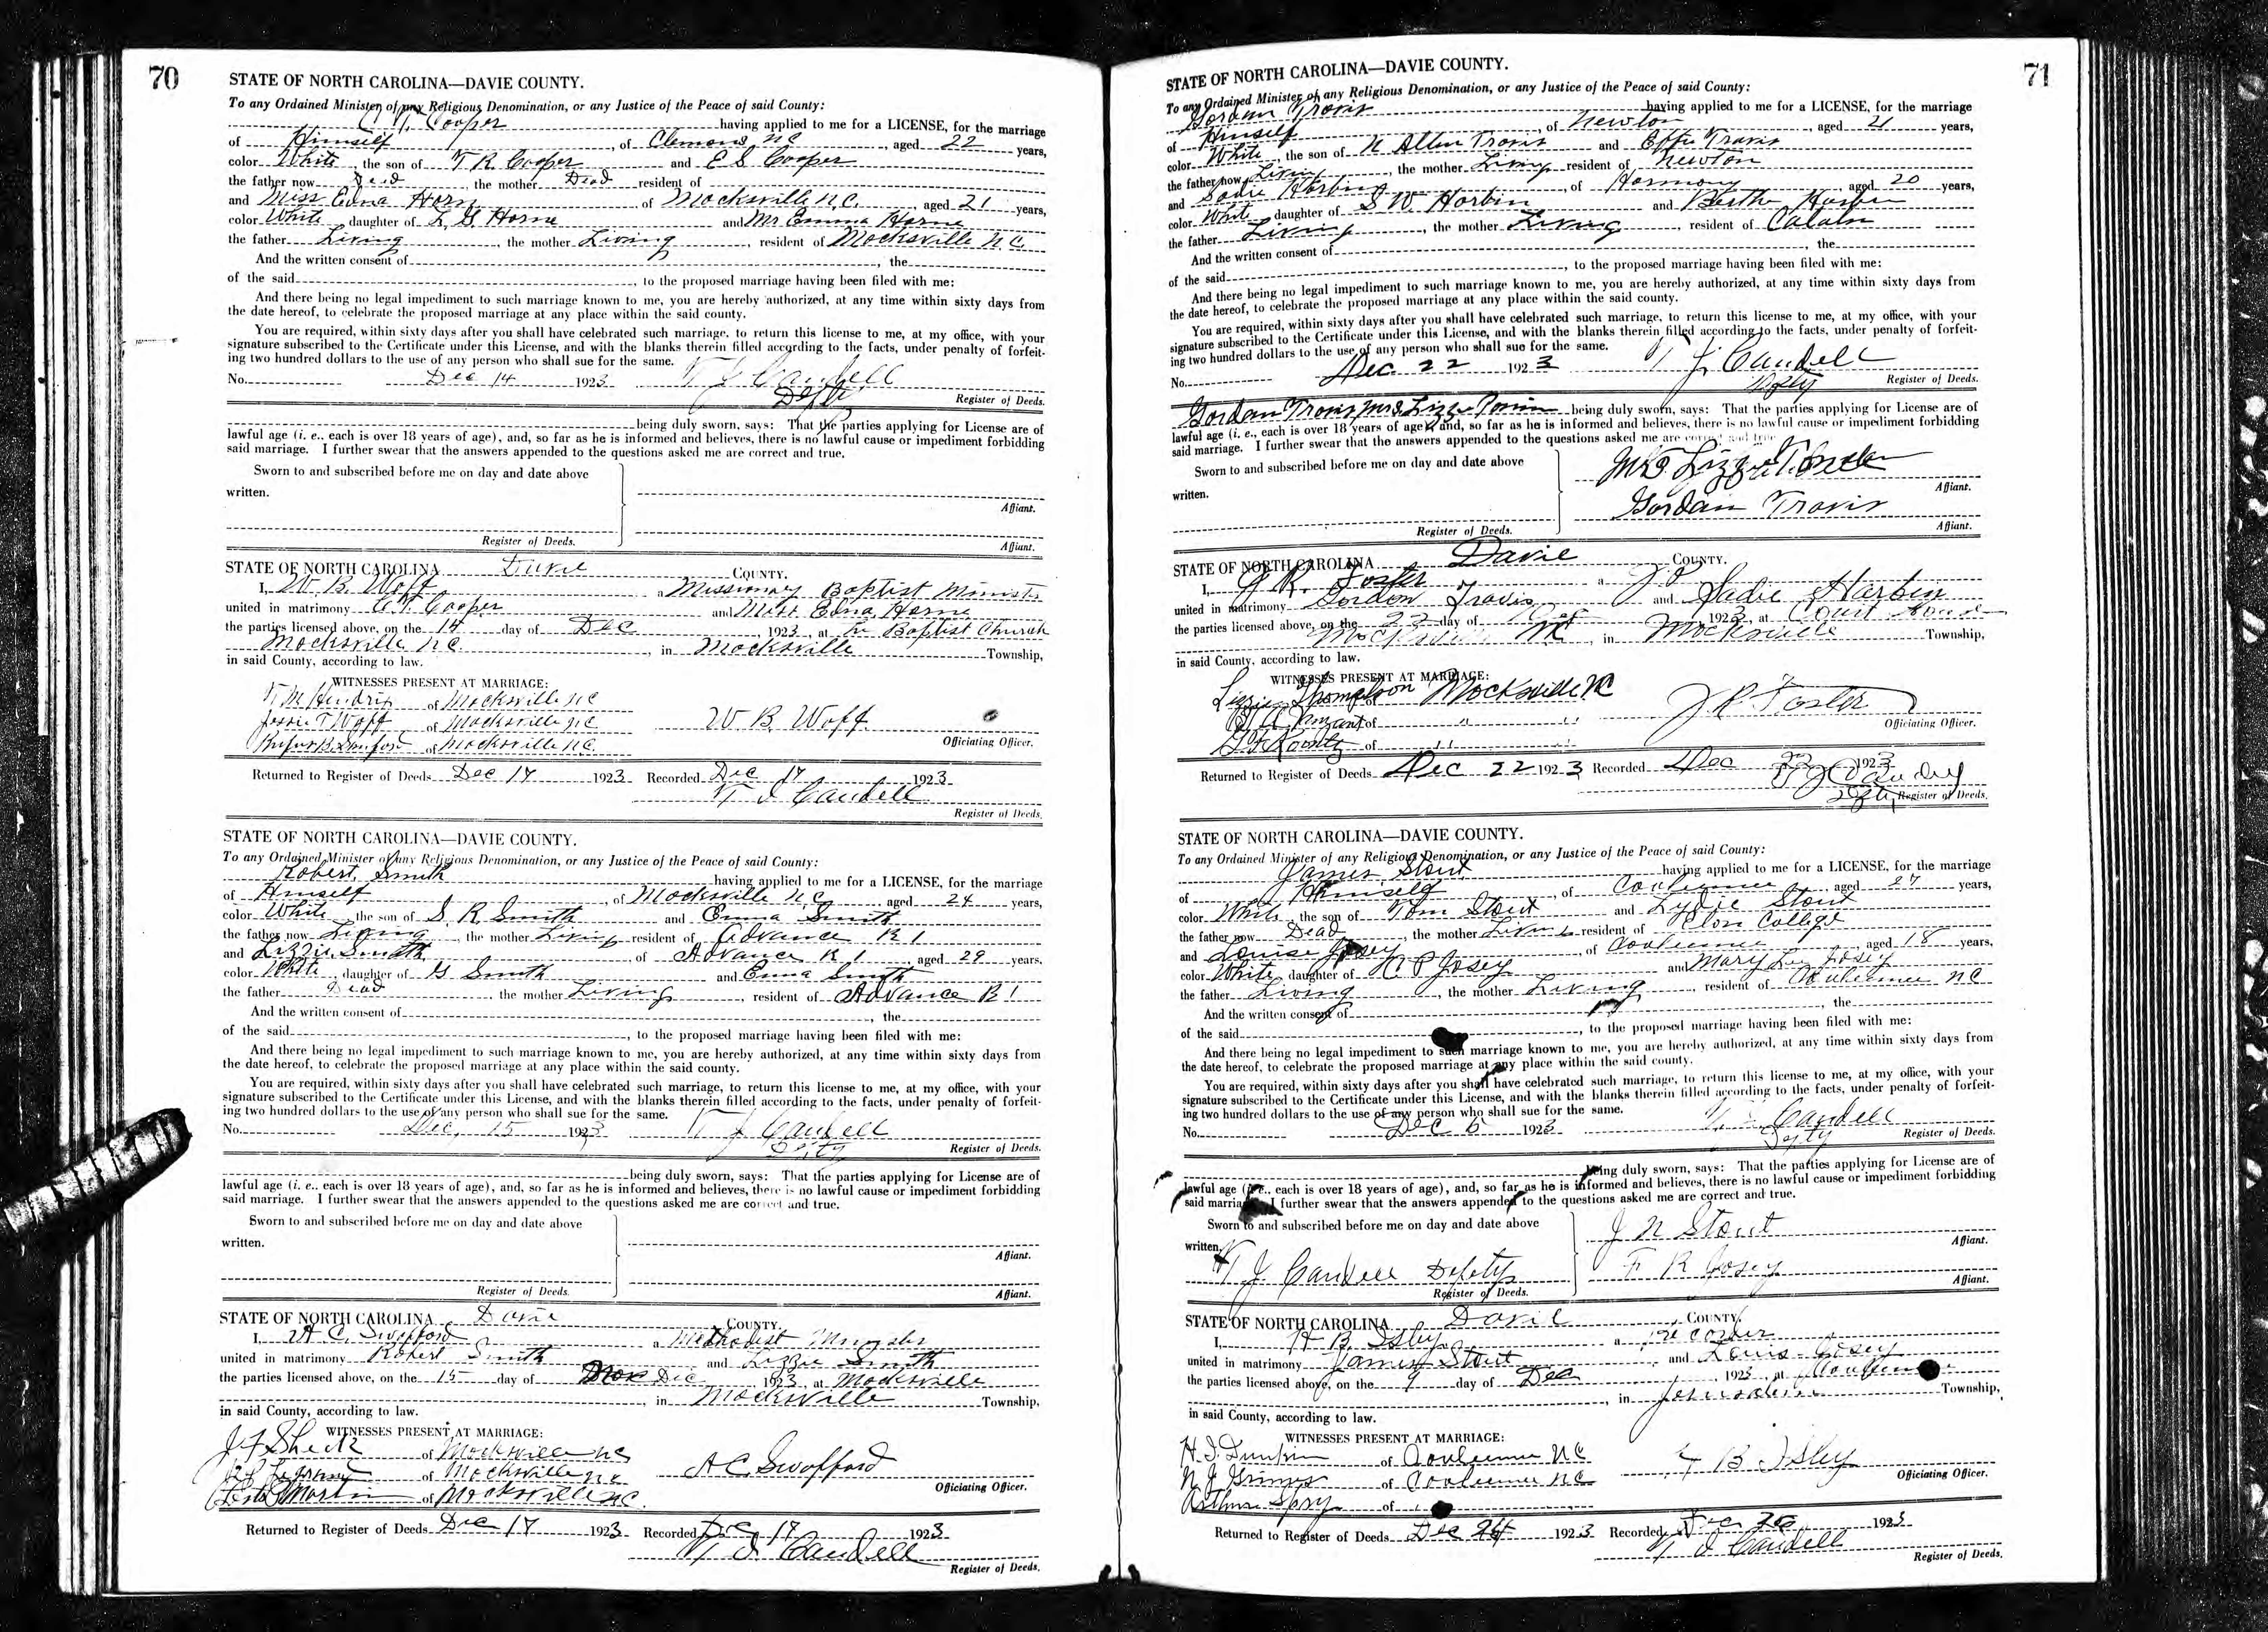 70
STATE OF NORTH CAROLINA—DAVIE COUNTY.
To any Ordained Minister of any Religious Denomination, or any Justice of the Peace of said County:
C T Cooper having applied to me for a LICENSE, for the marriage
of Himself, of Clemons NC, aged 22 years,
color White, the son of T R Cooper and E S Cooper
the father now Dead, the mother Dead resident of
and Miss Edna Horn of Mocksville N.C. aged 21 years,
color White daughter of L G Horne and Mr Emma Horne
the father Living, the mother Living, resident of Mocksville N.C.
And the written consent of , the
of the said , to the proposed marriage having been filed with me:
And there being no legal impediment to such marriage known to me, you are hereby authorized, at any time within sixty days from
the date hereof, to celebrate the proposed marriage at any place within the said county.
You are required, within sixty days after you shall have celebrated such marriage, to return this license to me, at my office, with your
signature subscribed to the Certificate under this License, and with the blanks therein filled according to the facts, under penalty of forfeit-
ing two hundred dollars to the use of any person who shall sue for the same.
No. Dec 14 1923 T J Caudell
Register of Deeds.
being duly sworn, says: That the parties applying for License are of
lawful age (i. e., each is over 18 years of age), and, so far as he is informed and believes, there is no lawful cause or impediment forbidding
said marriage. I further swear that the answers appended to the questions asked me are correct and true.
Sworn to and subscribed before me on day and date above
written.
Affiant.
Register of Deeds.
Affiant.
STATE OF NORTH CAROLINA Davie COUNTY.
I, W. B. Woff a Missionary Baptist Minister
united in matrimony C. T. Cooper and Miss Edna Horne
the parties licensed above, on the 14 day of Dec 1923, at Baptist Church
Mocksville N.C. in Mocksville Township,
in said County, according to law.
WITNESSES PRESENT AT MARRIAGE:
T M Hendrix of Mocksville NC
Jessie T Woff of Mocksville NC
Rufus B Sanford of Mocksville N.C.
W B. Woff
Officiating Officer.
Returned to Register of Deeds Dec 17 1923 Recorded Dec 17 1923
T J Caudell
Register of Deeds.
STATE OF NORTH CAROLINA—DAVIE COUNTY.
To any Ordained Minister of any Religious Denomination, or any Justice of the Peace of said County:
Robert Smith having applied to me for a LICENSE, for the marriage
of Himself, of Mocksville N.C. aged 24 years,
color White the son of S R Smith and Emma Smith
the father now Living, the mother Living resident of Advance R 1
and Lizzie Smith of Advance R 1 aged 29 years,
color White, daughter of G Smith and Emma Smith
the father Dead, the mother Living, resident of Advance R 1
And the written consent of , the
of the said , to the proposed marriage having been filed with me:
And there being no legal impediment to such marriage known to me, you are hereby authorized, at any time within sixty days from
the date hereof, to celebrate the proposed marriage at any place within the said county.
You are required, within sixty days after you shall have celebrated such marriage, to return this license to me, at my office, with your
signature subscribed to the Certificate under this License, and with the blanks therein filled according to the facts, under penalty of forfeit-
ing two hundred dollars to the use of any person who shall sue for the same.
No. Dec, 15 1923 T J Caudell
Register of Deeds.
being duly sworn, says: That the parties applying for License are of
lawful age (i. e.. each is over 18 years of age), and, so far as he is informed and believes, there is no lawful cause or impediment forbidding
said marriage. I further swear that the answers appended to the questions asked me are correct and true.
Sworn to and subscribed before me on day and date above
written.
Affiant.
Register of Deeds.
Affiant.
STATE OF NORTH CAROLINA Davie COUNTY.
I, A C. Swofford a Methodist Minister
united in matrimony Robert Smith and Lizzie Smith
the parties licensed above, on the 15 day of Dec 1923 at Mocksville
in Mocksville Township,
in said County, according to law.
WITNESSES PRESENT AT MARRIAGE:
J F Sheek of Mocksville NC
of Mocksville NC
Martin of Mocksville NC.
A C. Swofford
Officiating Officer.
Returned to Register of Deeds Dec 17 1923 Recorded Dec 17 1923
T J Caudell
Register of Deeds.
71
STATE OF NORTH CAROLINA—DAVIE COUNTY.
To any Ordained Minister of any Religious Denomination, or any Justice of the Peace of said County:
Gordan Travis having applied to me for a LICENSE, for the marriage
of Himself, of Newton, aged 21 years,
color White, the son of N Allen Travis and Effie Travis
the father now Living, the mother Living resident of Newton
and Sadie Harbin, of Harmony, aged 20 years,
color White daughter of S W Harbin and Bertha Harbin
the father Living, the mother Living, resident of Calahn
And the written consent of , the
of the said , to the proposed marriage having been filed with me:
And there being no legal impediment to such marriage known to me, you are hereby authorized, at any time within sixty days from
the date hereof, to celebrate the proposed marriage at any place within the said county.
You are required, within sixty days after you shall have celebrated such marriage, to return this license to me, at my office, with your
signature subscribed to the Certificate under this License, and with the blanks therein filled according to the facts, under penalty of forfeit-
ing two hundred dollars to the use of any person who shall sue for the same.
No. Dec. 22 1923 T J. Caudell
Register of Deeds.
Gordan Travis Mrs Lizzie being duly sworn, says: That the parties applying for License are of
lawful age (i. e., each is over 18 years of age), and, so far as he is informed and believes, there is no lawful cause or impediment forbidding
said marriage. I further swear that the answers appended to the questions asked me are correct and true
Sworn to and subscribed before me on day and date above
written.
Mrs. Lizzie
Affiant.
Gordan Travis
Register of Deeds.
Affiant.
STATE OF NORTH CAROLINA Davie COUNTY.
I, J R. Foster a J P
united in matrimony Gordon Travis and Sadie Harbin
the parties licensed above, on the 22 day of Dec 1923, at Court House
Mocksville NC, in Mocksville Township,
in said County, according to law.
WITNESSES PRESENT AT MARRIAGE:
Lizzie Thompson Mocksville NC
of " "
of " "
J R Foster
Officiating Officer.
Returned to Register of Deeds Dec 22 1923 Recorded Dec 1923
T J Caudell
Register of Deeds.
STATE OF NORTH CAROLINA—DAVIE COUNTY.
To any Ordained Minister of any Religious Denomination, or any Justice of the Peace of said County:
James Stout having applied to me for a LICENSE, for the marriage
of Himself, of Cooleemee aged 27 years,
color White the son of Tom Stout and Lydie Stout
the father now Dead, the mother Living resident of Elon College
and Louise Josey, of Cooleemee, aged 18 years,
color White daughter of C P Josey and Mary Lee Josey
the father Living, the mother Living, resident of Cooleemee NC
And the written consent of , the
of the said , to the proposed marriage having been filed with me:
And there being no legal impediment to such marriage known to me, you are hereby authorized, at any time within sixty days from
the date hereof, to celebrate the proposed marriage at any place within the said county.
You are required, within sixty days after you shall have celebrated such marriage, to return this license to me, at my office, with your
signature subscribed to the Certificate under this License, and with the blanks therein filled according to the facts, under penalty of forfeit-
ing two hundred dollars to the use of any person who shall sue for the same.
No. Dec 6 1923 T J Caudell
Depty Register of Deeds.
being duly sworn, says: That the parties applying for License are of
lawful age (i. e.. each is over 18 years of age), and, so far as he is informed and believes, there is no lawful cause or impediment forbidding
said marriage. I further swear that the answers appended to the questions asked me are correct and true.
Sworn to and subscribed before me on day and date above
written.
J N Stout
Affiant.
T J. Caudell Depety
F R Josey
Register of Deeds.
Affiant.
STATE OF NORTH CAROLINA Davie COUNTY.
I, H B. Isley a recorder
united in matrimony James Stout and Louis Josey
the parties licensed above, on the 9 day of Dec 1923, at Cooleemee
in Jerusalem Township,
in said County, according to law.
WITNESSES PRESENT AT MARRIAGE:
H. I. Dunkin of Cooleemee NC
N. J. Grimes of Cooleemee NC
Arthur Spry of
H B Isley
Officiating Officer.
Returned to Register of Deeds Dec 24 1923 Recorded Dec 1923
T J Caudell
Register of Deeds.